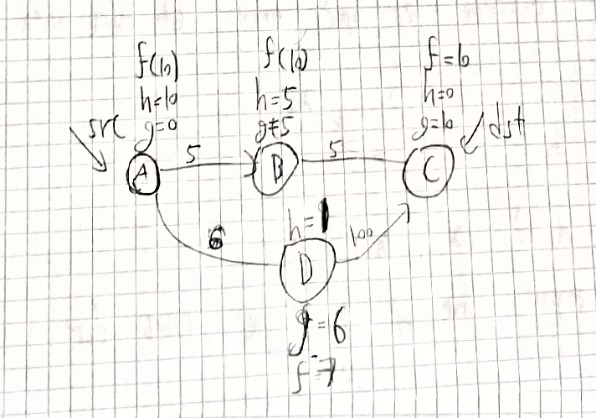 f(10)
h=10
g=0
src
A
5
f(10)
h=5
g=5
B
5
f=10
h=0
g=10
dst
C
6
h=1
D
100
g=6
f=7